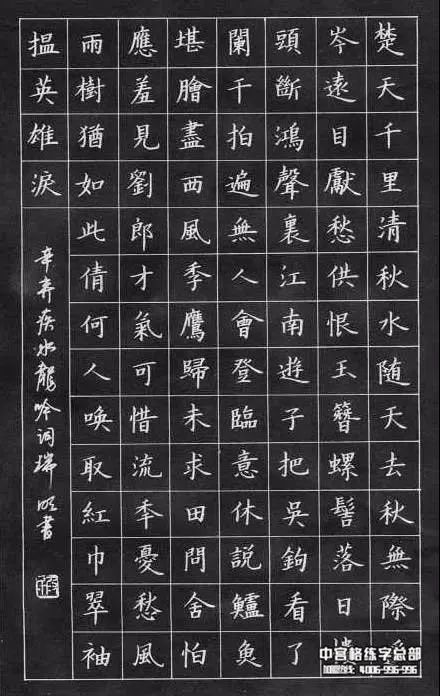 楚天千里清秋水随天去秋無際
岑遠目獻愁供恨玉簪螺髻落日樓
頭斷鴻聲裏江南遊子把吳鉤看了
闌干拍遍無人會登臨意休説鱸魚
堪膾盡西風季鷹歸未求田問舍怕
應羞見劉郎才氣可惜流秊憂愁風
雨樹猶如此倩何人喚取紅巾翠袖
揾英雄淚
辛弃疾水龍吟词瑞明书
中宫格练字总部
加盟热线: 4006-996-996